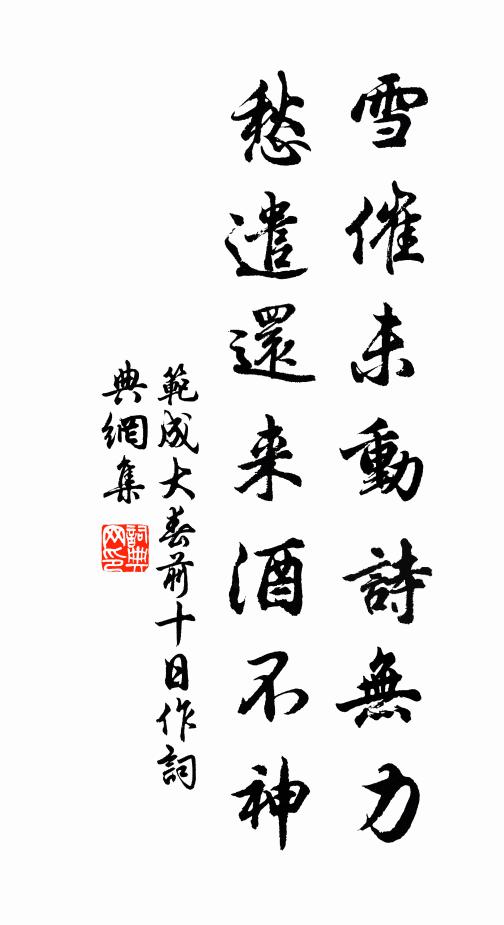 雪催未動詩無力
愁遣還来酒不神
範成大春前十日作詞
典網集
詞典網印